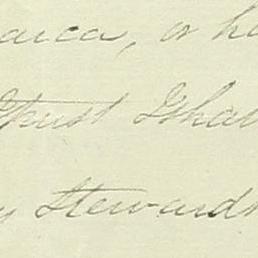 aica, or h
Trust I shal
Steward